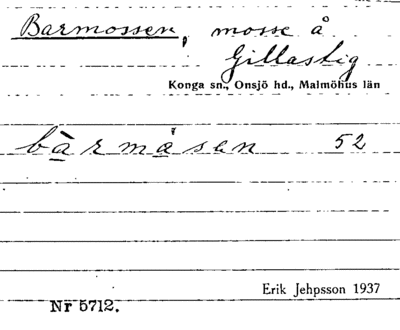 Barmossen, mosse å
Gillastig
Konga sn., Onsjö hd., Malmöhus län
bàrmåsen 52
Erik Jehpsson 1937
Nr 5712.